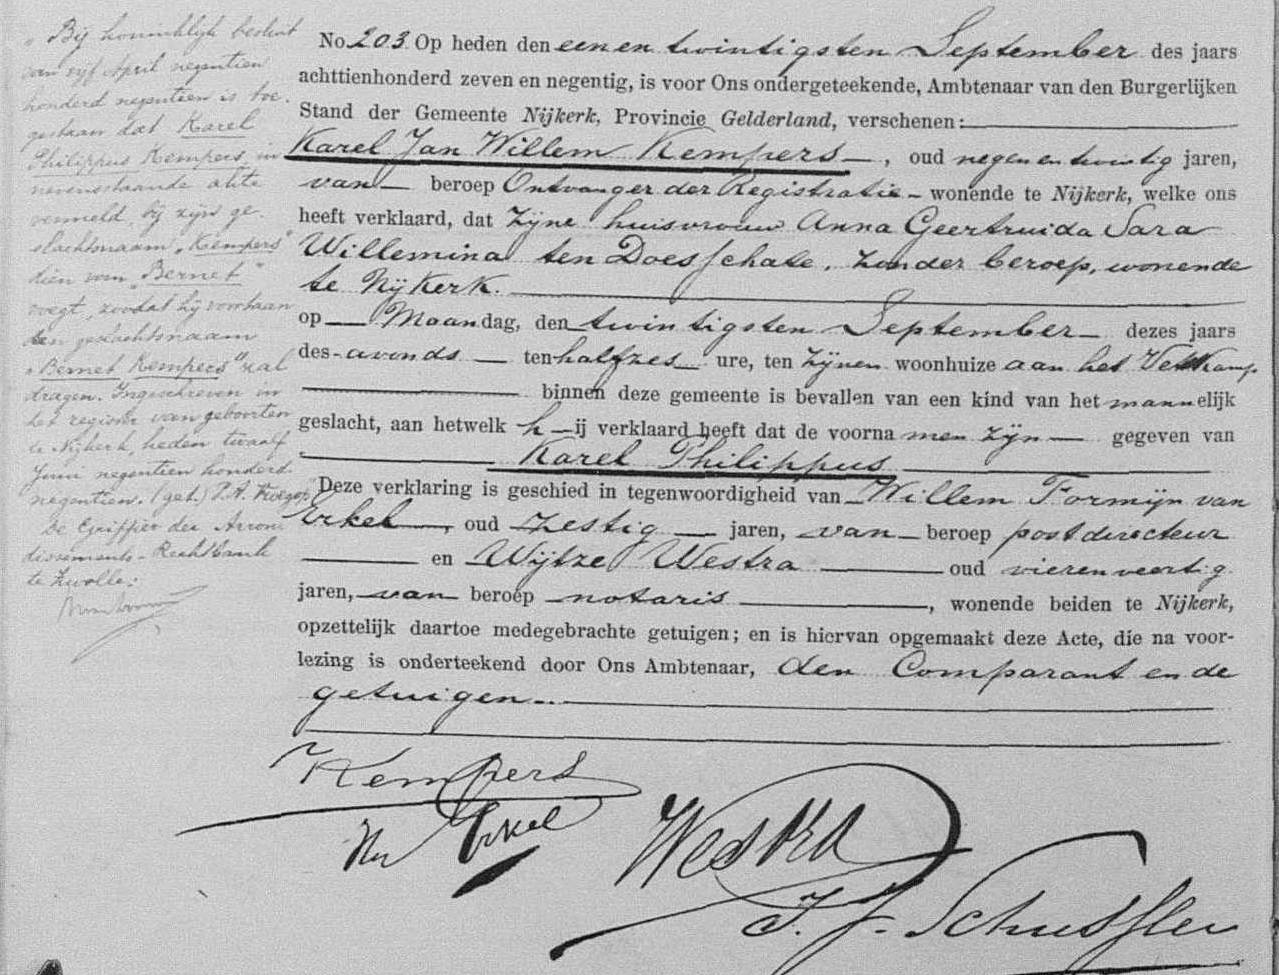 „Bij koninklijk besluit
van vijf April negentien
honderd negentien is toe-
gestaan dat Karel
Philippus Kempers, in
nevenstaande akte
vermeld, bij zijn ge-
slachtsnaam „Kempers"
dien van „Bernet"
voegt, zoodat hij voortaan
den geslachtsnaam
„Bernet Kempers" zal
dragen. Ingeschreven in
het register van geboorten
te Nijkerk, heden twaalf
Juni negentien honderd
negentien. (get.)
De Griffier der Arron-
dissements-Rechtbank
te Zwolle:
No. 203 Op heden den een en twintigsten September des jaars
achttienhonderd zeven en negentig, is voor Ons ondergeteekende, Ambtenaar van den Burgerlijken
Stand der Gemeente Nijkerk, Provincie Gelderland, verschenen:
Karel Jan Willem Kempers, oud negen en twintig jaren,
van beroep Ontvanger der Registratie wonende te Nijkerk, welke ons
heeft verklaard, dat zijne huisvrouw Anna Geertruida Sara
Willemina ten Doesschate, zonder beroep, wonende
te Nijkerk.
op Maandag, den twintigsten September dezes jaars
des avonds ten halfzes ure, ten zijnen woonhuize aan het Vetkamp
binnen deze gemeente is bevallen van een kind van het mannelijk
geslacht, aan hetwelk hij verklaard heeft dat de voornamen zijn gegeven van
Karel Philippus
Deze verklaring is geschied in tegenwoordigheid van Willem Formijn van
Erkel, oud zestig jaren, van beroep postdirecteur
en Wijtze Westra oud vier en veertig
jaren, van beroep notaris, wonende beiden te Nijkerk,
opzettelijk daartoe medegebrachte getuigen; en is hiervan opgemaakt deze Acte, die na voor-
lezing is onderteekend door Ons Ambtenaar, den Comparant en de
getuigen.
Kempers
Erkel
Westra
J. J. Schussler